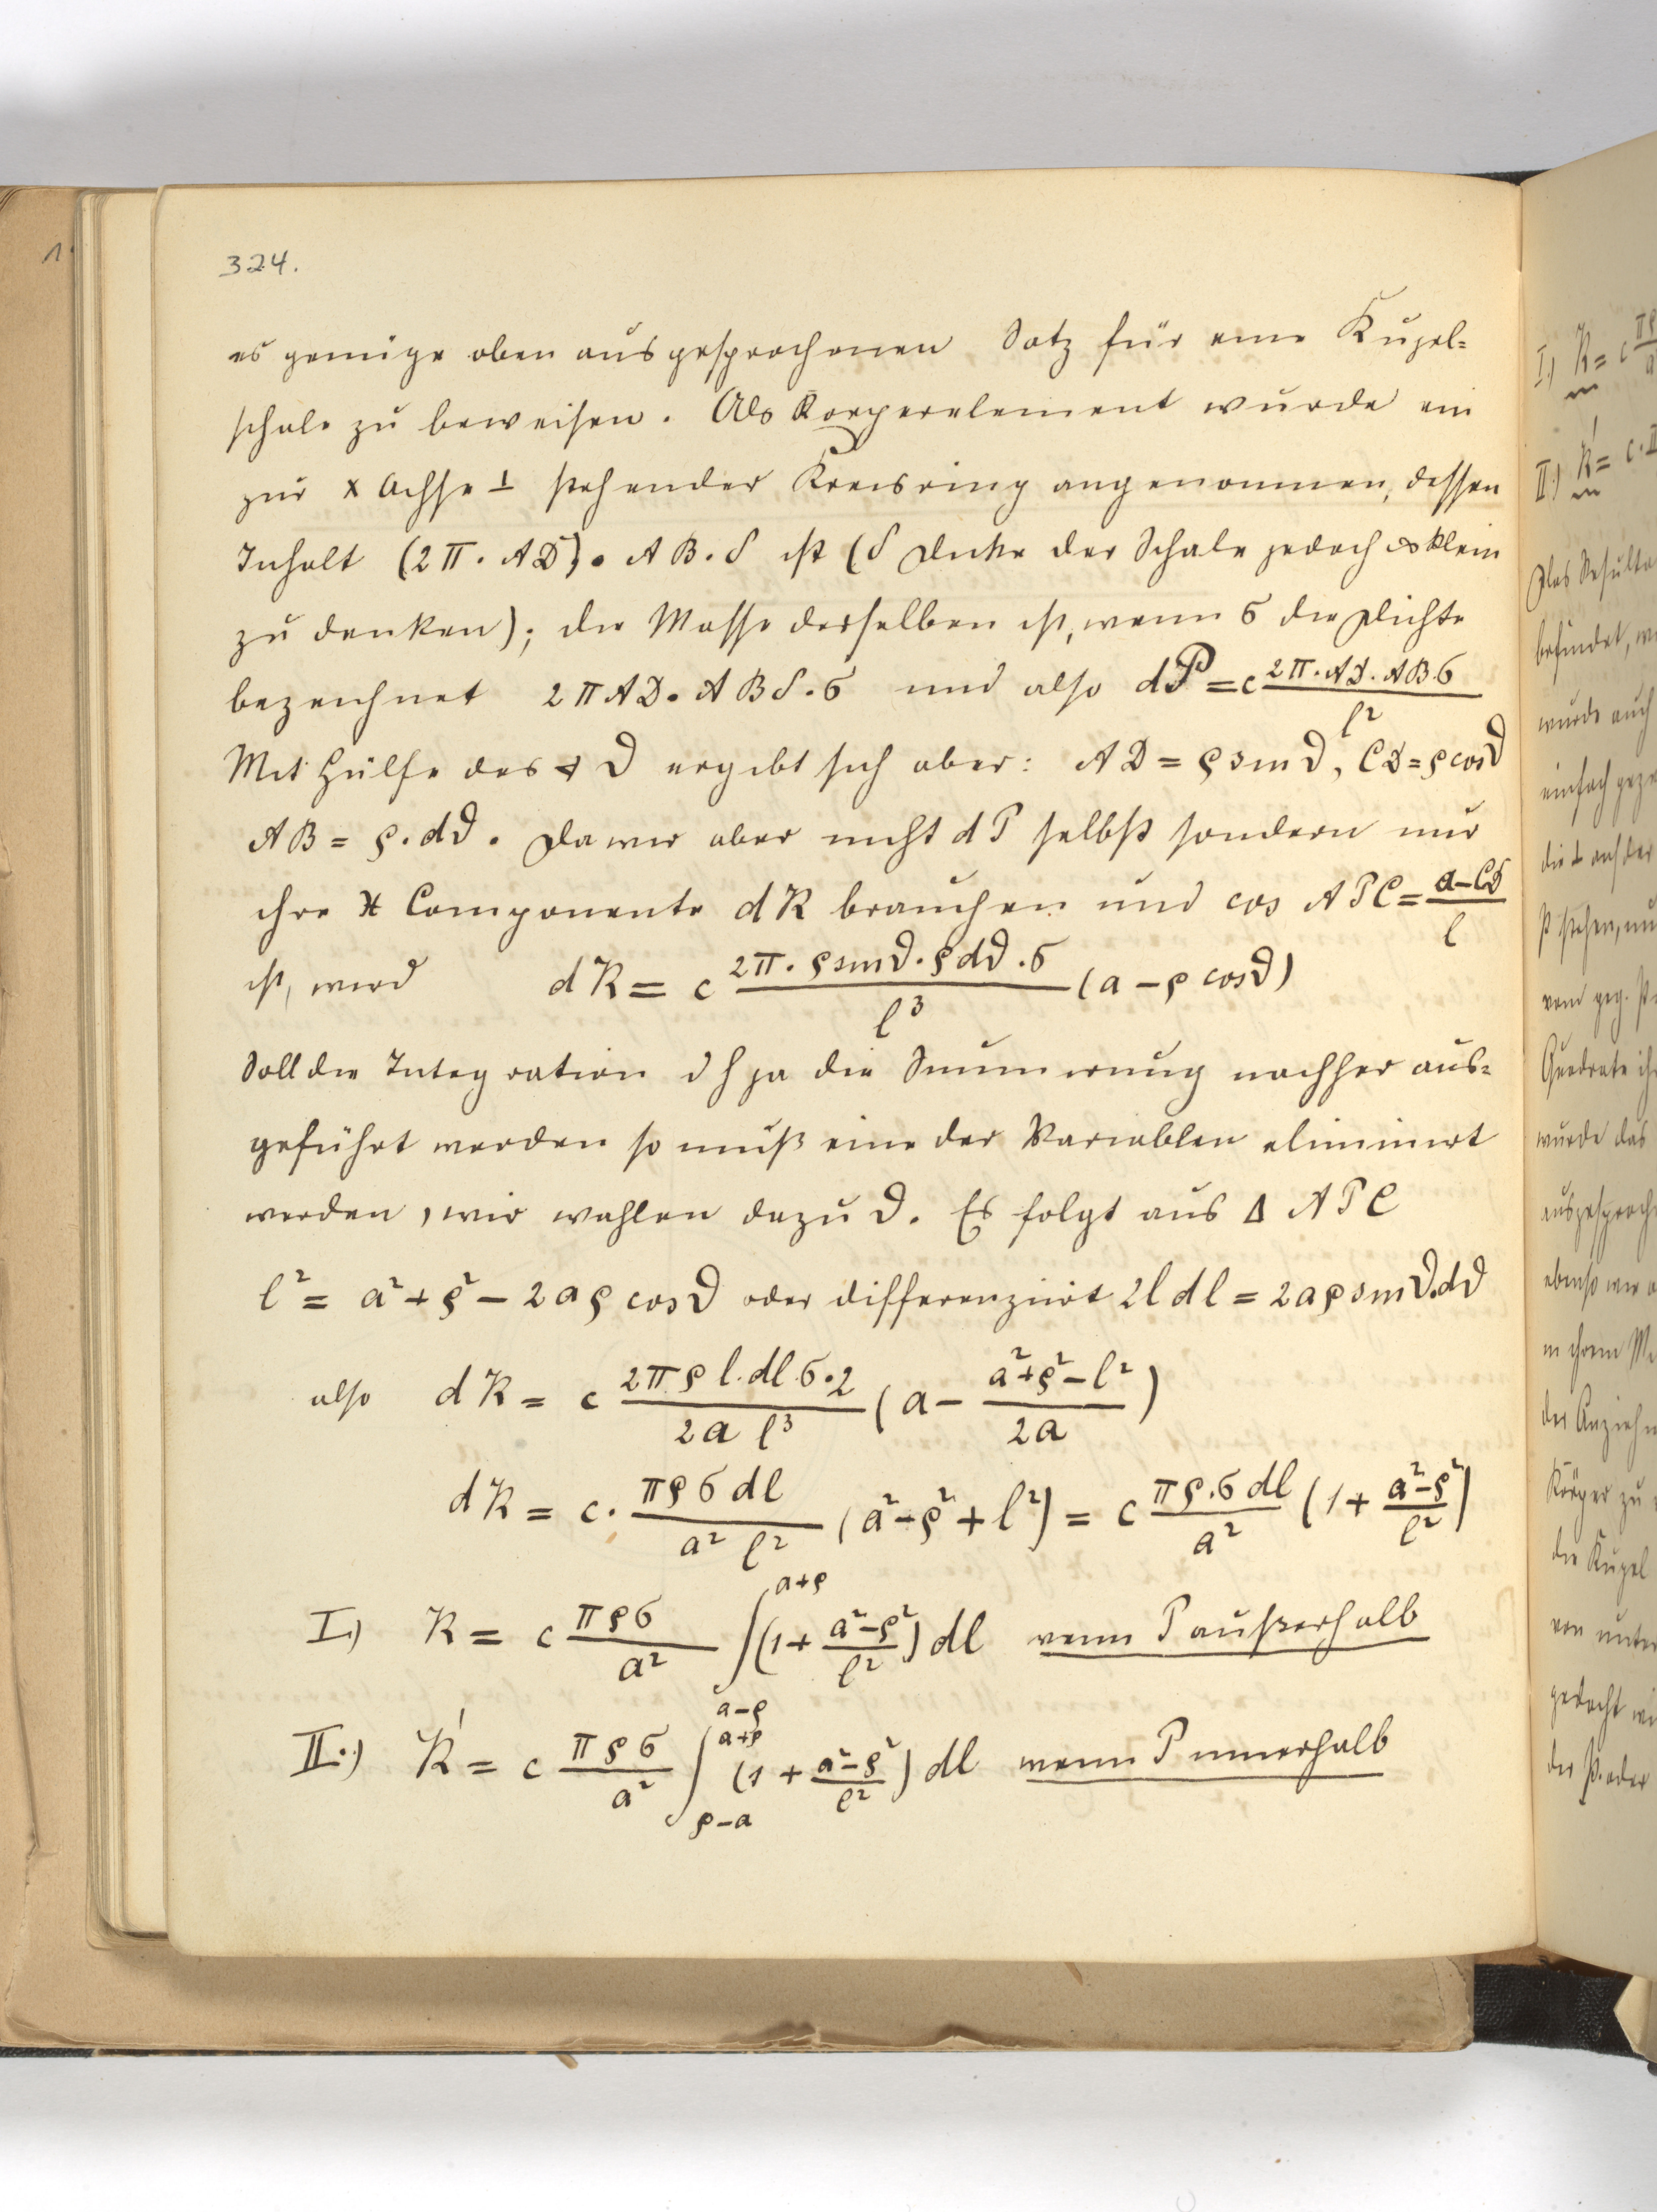 324.
es genüge oben ausgesprochenen Satz für eine Kugel=
schale zu beweisen. Als Körperelement wurde ein
zur x Achse ⊥ stehender Kreisring angenommen, dessen
Inhalt (2π. AD). AB. δ ist (δ Dicke der Schale jedoch ∞ klein
zu denken); die Masse desselben ist, wenn σ die Dichte
bezeichnet 2πAD. ABδ.σ und also dP = c 2π.AD.ABσ / l²
Mit Hülfe des ∢ ϑ ergibt sich aber: AD = ρ sin ϑ, CD = ρ cos ϑ
AB = ρ.dϑ. Da wir aber nicht dP selbst sondern nur
ihre X Componente dK brauchen und cos APC = a–CD / l
ist, wird dK = c 2π. ρ sin ϑ. ρdϑ.σ / l³ (a – ρ cos ϑ)
Soll die Integration dh ja die Summierung nachher aus=
geführt werden so muß eine der Variablen eliminirt
werden, wir wahlen dazu ϑ. Es folgt aus Δ APC
l² = a² + ρ² – 2aρ cos ϑ oder differenzirt 2l dl = 2aρ sin ϑ.dϑ
also dK = c 2πρ l.dl.σ.2 / 2a l³ (a – a²+ρ²–l² / 2a)
dK = c. πρσ dl / a² l² (a²–ρ²+l²) = c πρ.σ dl / a² (1 + a²–ρ² / l²)
I.) K = c πρσ / a² ∫_{a–ρ}^{a+ρ} (1 + a²–ρ² / l²) dl wenn P außerhalb
II.) K' = c πρσ / a² ∫_{ρ–a}^{a+ρ} (1 + a²–ρ² / l²) dl wenn P innerhalb
I.) K = c πρ
II.) K' = c.
befindet,
wurde auch
einfach
die ⊥ auf der
vom geg.
Quadrate
wurde das
in ihrem
der
Körper zu
die Kugel
von unter
gedacht
der P. oder